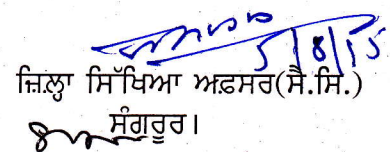 5/8/15
ਜ਼ਿਲ੍ਹਾ ਸਿੱਖਿਆ ਅਫ਼ਸਰ(ਸੈ.ਸਿ.)
ਸੰਗਰੂਰ।